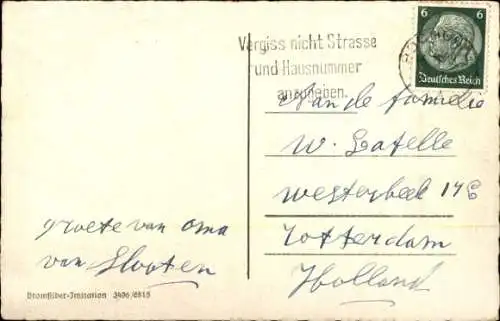 Vergiss nicht Strasse
und Hausnummer
anzugeben.
6 6
Deutsches Reich
Aan de familie
W. Latelle
Westerbeek 14
Rotterdam
Holland
groete van oma
van Slooten
Bromsilber-Imitation 3496/6815